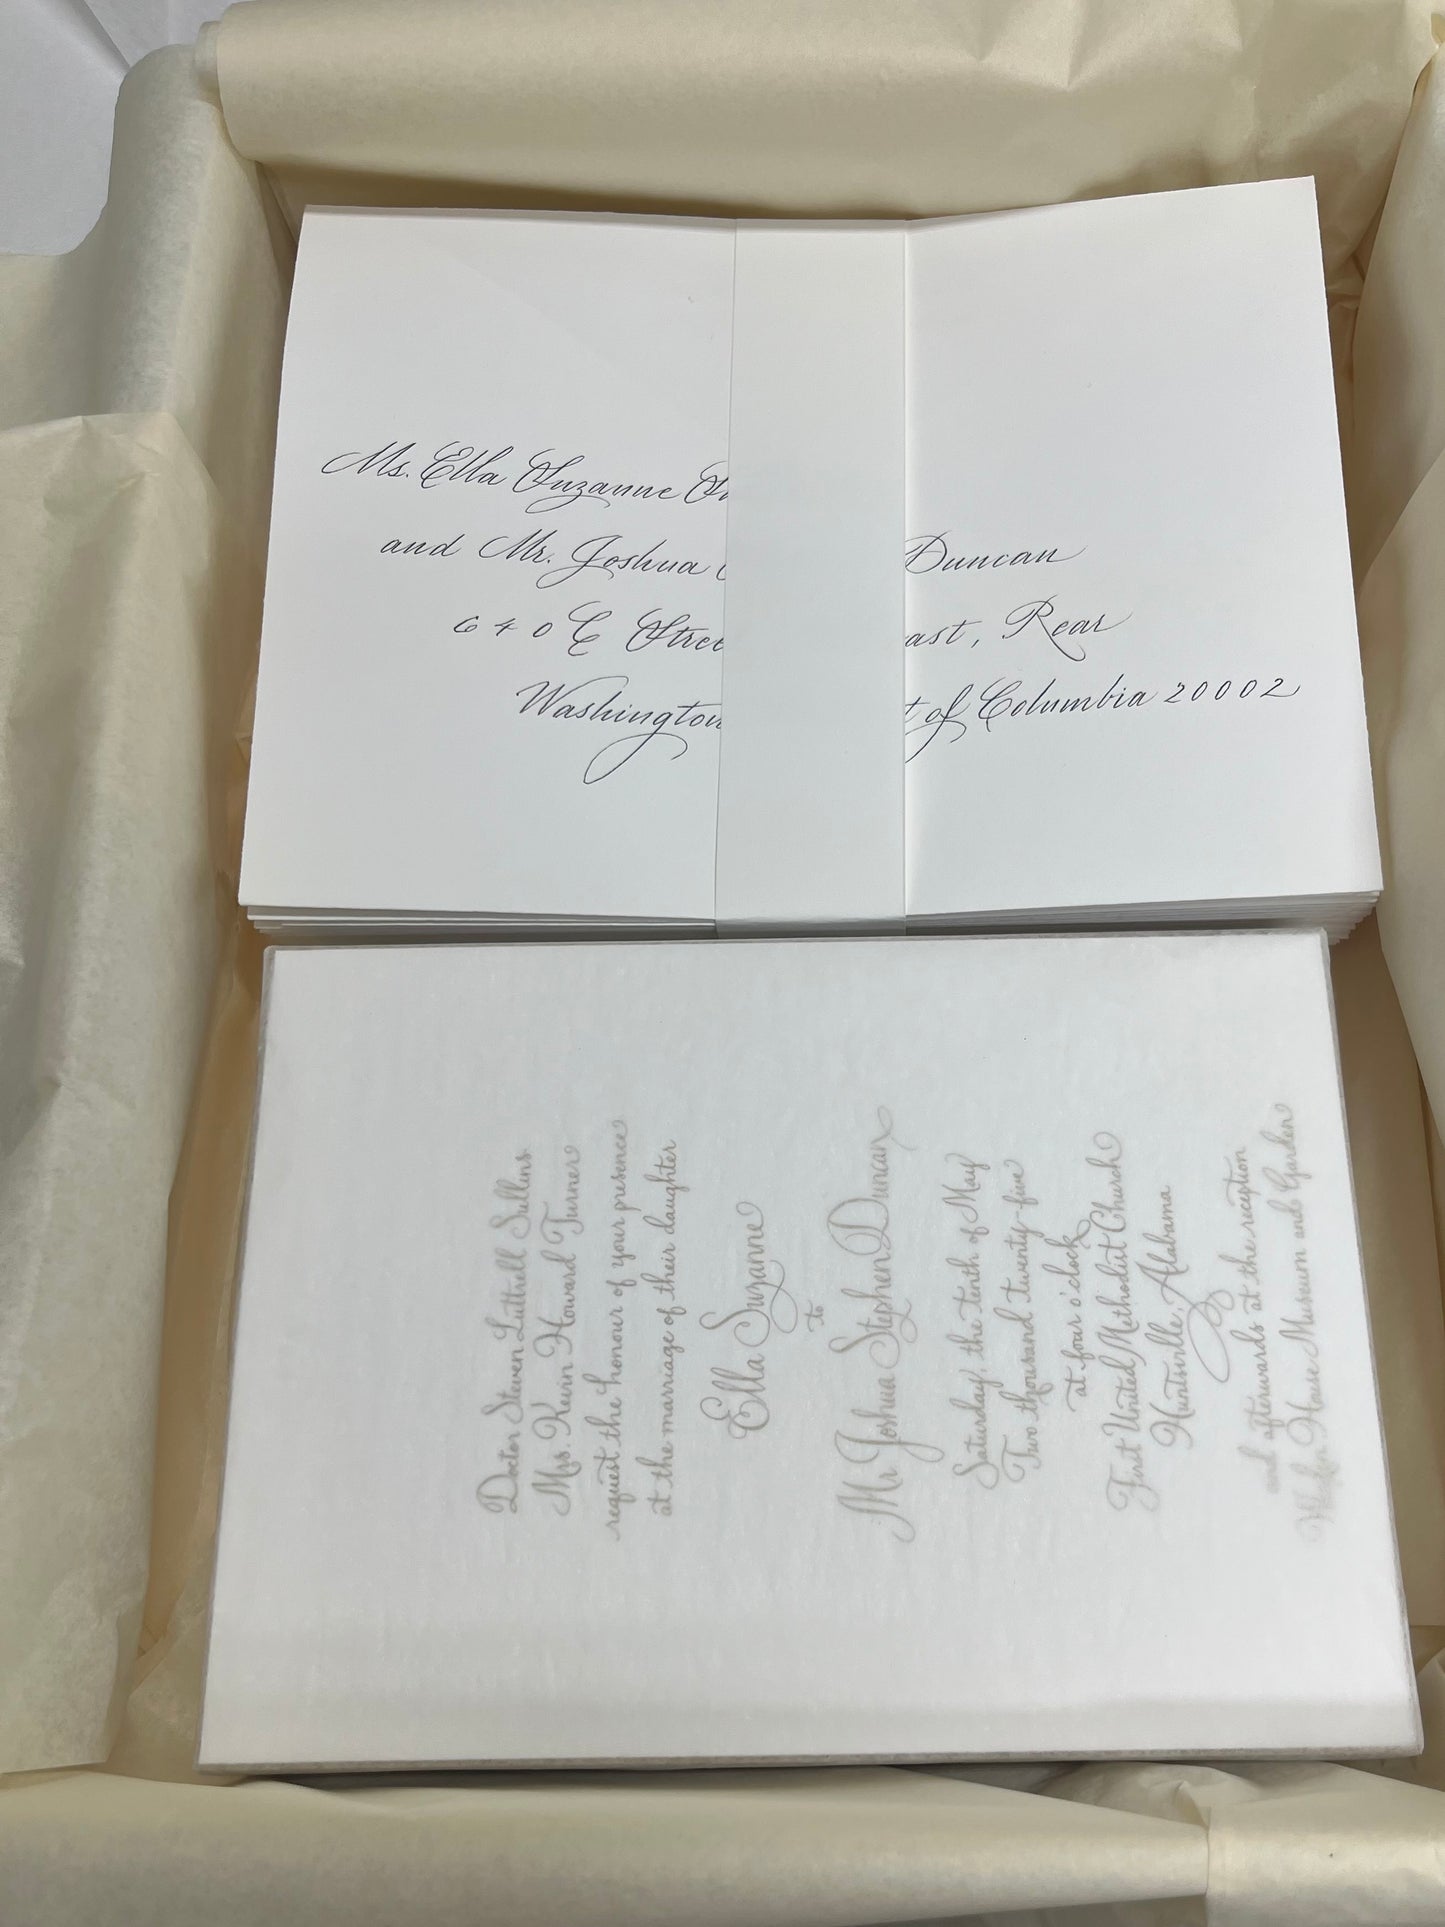 Ms. Ella Suzanne
and Mr. Joshua Duncan
640 E Rear
Washington of Columbia 20002
Doctor Steven Luttrell Sullins
Mrs. Kevin Howard Turner
request the honour of your presence
at the marriage of their daughter
Ella Suzanne
to
Mr Joshua Stephen Duncan
Saturday, the tenth of May
Two thousand twenty-five
at four o'clock
First United Methodist Church
Huntsville, Alabama
and afterwards at the reception
House Museum and Garden